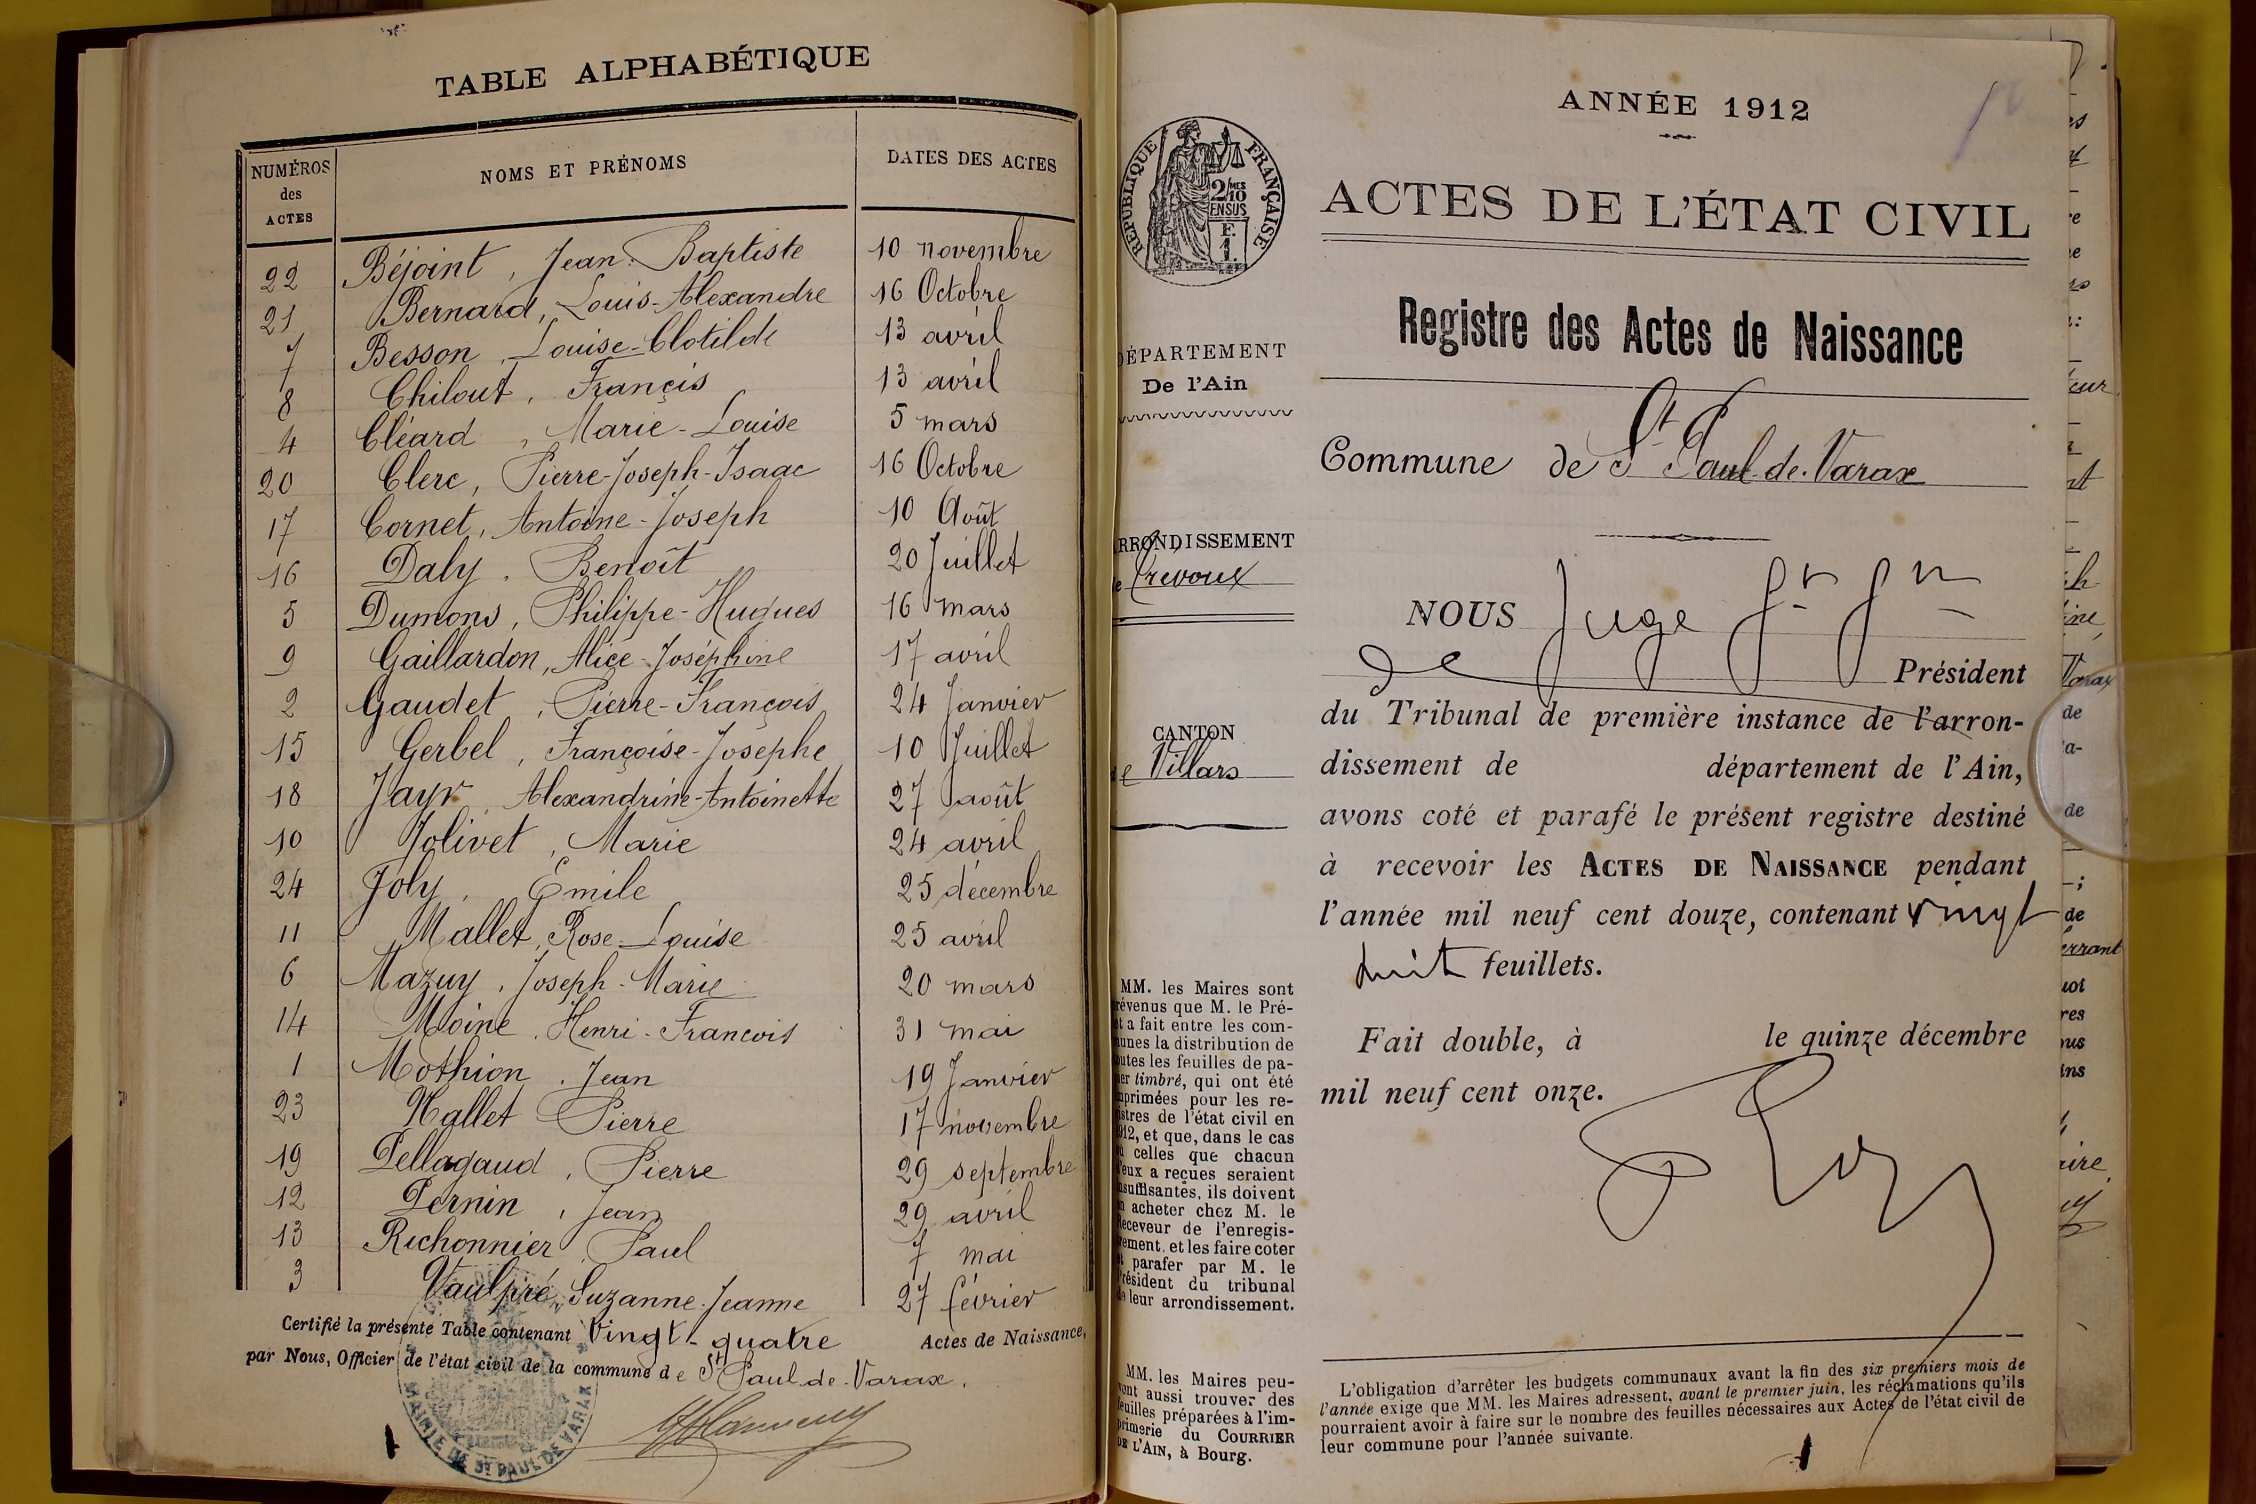 TABLE ALPHABÉTIQUE
NUMÉROS des ACTES NOMS ET PRÉNOMS DATES DES ACTES
22 Béjoint, Jean-Baptiste 10 novembre
21 Bernard, Louis-Alexandre 16 Octobre
7 Besson, Louise-Clotilde 13 avril
8 Chilout, Françis 13 avril
4 Cléard, Marie-Louise 5 mars
20 Clerc, Pierre-Joseph-Isaac 16 Octobre
17 Cornet, Antoine-Joseph 10 Août
16 Daly, Benoît 20 Juillet
5 Dumons, Philippe-Hugues 16 mars
9 Gaillardon, Alice-Joséphine 17 avril
2 Gaudet, Pierre-François 24 Janvier
15 Gerbel, Françoise-Josephe 10 Juillet
18 Jayr, Alexandrine-Antoinette 27 août
10 Jolivet, Marie 24 avril
24 Joly, Emile 25 décembre
11 Mallet, Rose-Louise 25 avril
6 Mazuy, Joseph-Marie 20 mars
14 Moine, Henri-Francois 31 mai
1 Mothion, Jean 19 Janvier
23 Nallet Pierre 17 novembre
19 Pellagaud, Pierre 29 septembre
12 Pernin, Jean 29 avril
13 Richonnier, Paul 7 mai
3 Vaulpré, Suzanne-Jeanne 27 février
Certifié la présente Table contenant Vingt-quatre Actes de Naissance,
par Nous, Officier de l'état civil de la commune de St Paul-de-Varax.
MAIRIE DE ST PAUL DE VARAX
ANNÉE 1912
RÉPUBLIQUE FRANÇAISE
2/10 MES
EN SUS
F.
1.
ACTES DE L'ÉTAT CIVIL
Registre des Actes de Naissance
DÉPARTEMENT
De l'Ain
Commune de St Paul-de-Varax
ARRONDISSEMENT
de Trévoux
NOUS Juge
de Président
CANTON
de Villars
du Tribunal de première instance de l'arron-
dissement de département de l'Ain,
avons coté et parafé le présent registre destiné
à recevoir les ACTES DE NAISSANCE pendant
l'année mil neuf cent douze, contenant vingt
huit feuillets.
Fait double, à le quinze décembre
mil neuf cent onze.
MM. les Maires sont
prévenus que M. le Pré-
fet a fait entre les com-
munes la distribution de
toutes les feuilles de pa-
pier timbré, qui ont été
imprimées pour les re-
gistres de l'état civil en
1912, et que, dans le cas
où celles que chacun
d'eux a reçues seraient
insuffisantes, ils doivent
en acheter chez M. le
Receveur de l'enregis-
trement, et les faire coter
et parafer par M. le
Président du tribunal
de leur arrondissement.
MM. les Maires peu-
vent aussi trouver des
feuilles préparées à l'im-
primerie du COURRIER
DE L'AIN, à Bourg.
L'obligation d'arrêter les budgets communaux avant la fin des six premiers mois de
l'année exige que MM. les Maires adressent, avant le premier juin, les réclamations qu'ils
pourraient avoir à faire sur le nombre des feuilles nécessaires aux Actes de l'état civil de
leur commune pour l'année suivante.